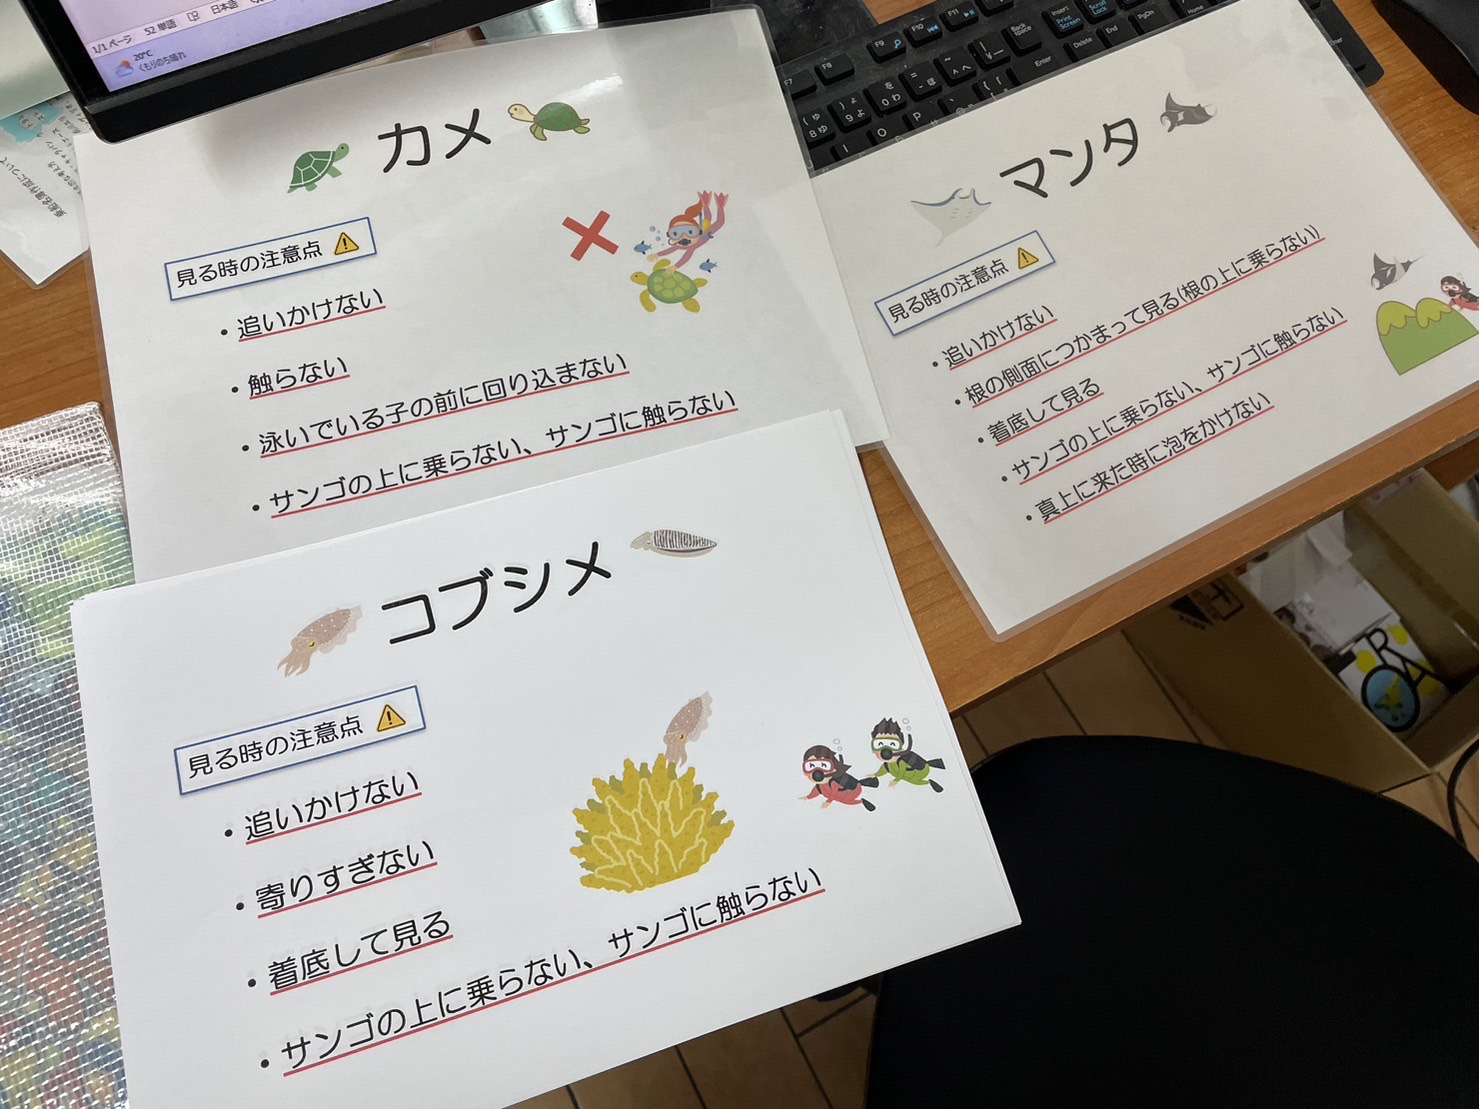 1/1 ページ 52 単語 日本語
20°C
くもりのち晴れ
カメ
見る時の注意点
・追いかけない
・触らない
・泳いでいる子の前に回り込まない
・サンゴの上に乗らない、サンゴに触らない
マンタ
見る時の注意点
・追いかけない
・根の側面につかまって見る(根の上に乗らない)
・着底して見る
・サンゴの上に乗らない、サンゴに触らない
・真上に来た時に泡をかけない
コブシメ
見る時の注意点
・追いかけない
・寄りすぎない
・着底して見る
・サンゴの上に乗らない、サンゴに触らない
F7 F8 F9 F10 F11
Back Space
Insert
Print Screen
Scroll Lock
Delete
End
PgDn
Home
Enter
I O P